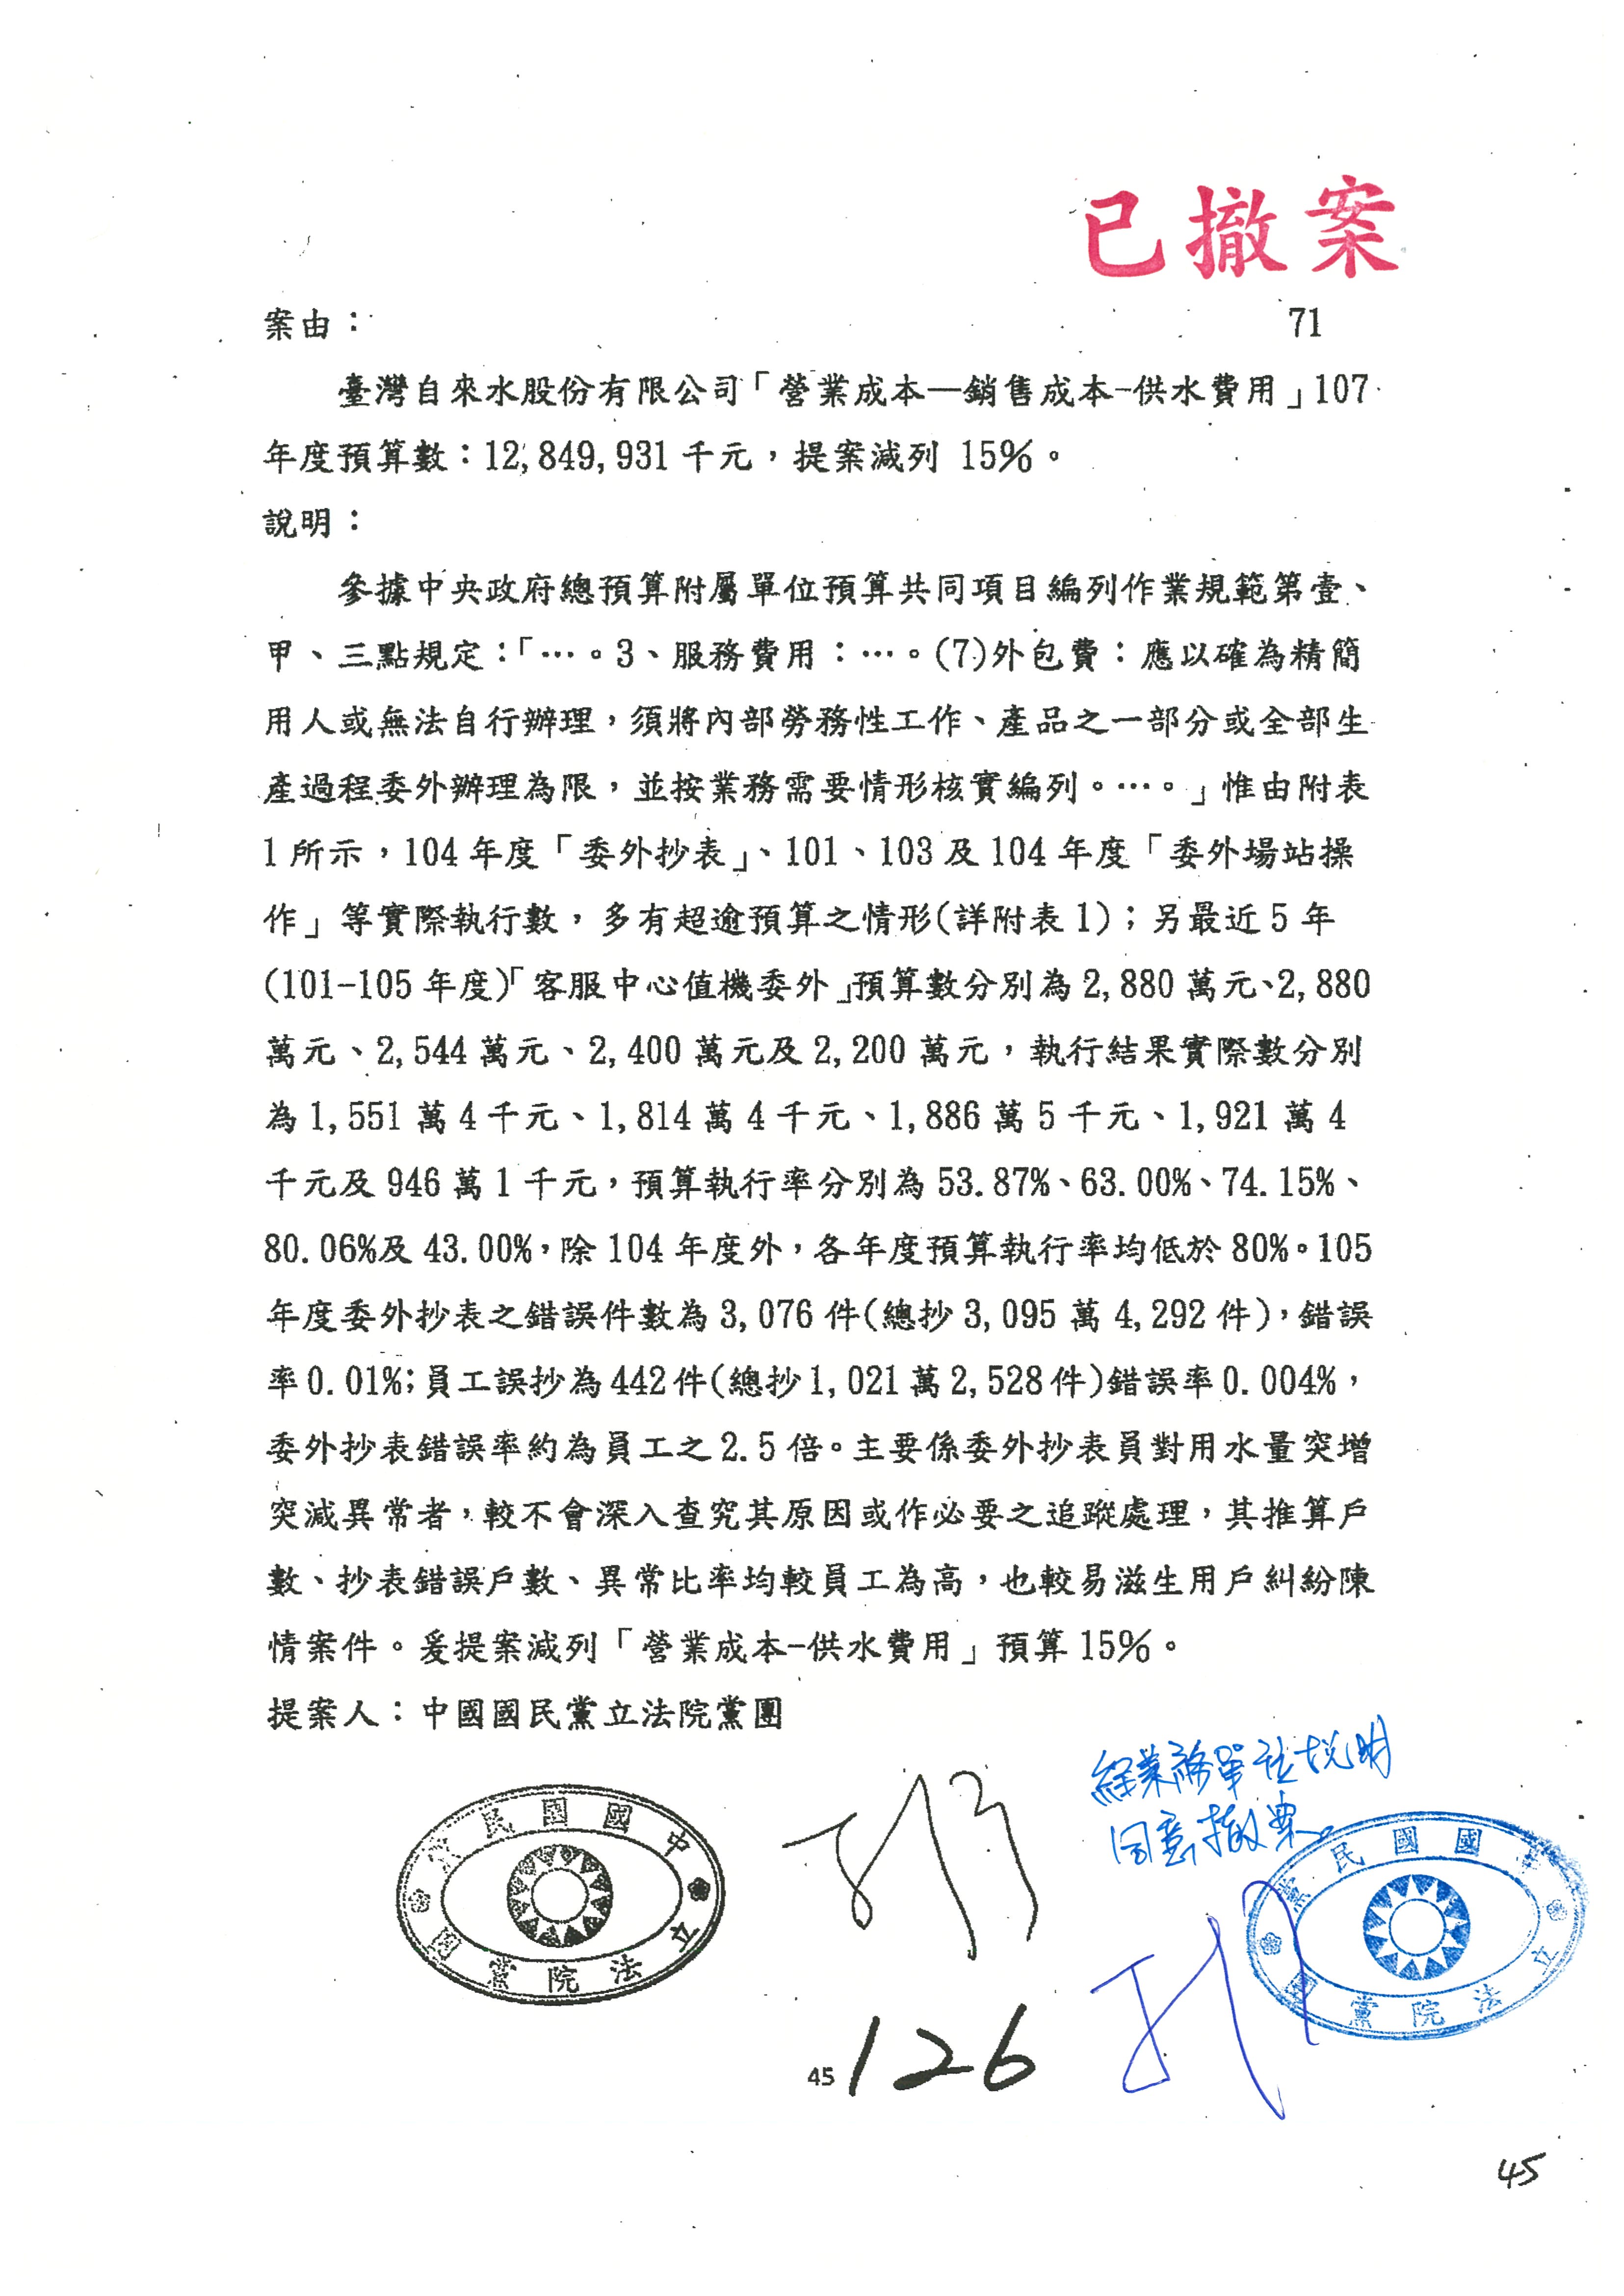 已撤案
案由：
71
臺灣自來水股份有限公司「營業成本—銷售成本-供水費用」107
年度預算數：12,849,931 千元，提案減列 15%。
說明：
參據中央政府總預算附屬單位預算共同項目編列作業規範第壹、
甲、三點規定：「…。3、服務費用：…。(7)外包費：應以確為精簡
用人或無法自行辦理，須將內部勞務性工作、產品之一部分或全部生
產過程委外辦理為限，並按業務需要情形核實編列。…。」惟由附表
1 所示，104 年度「委外抄表」、101、103 及 104 年度「委外場站操
作」等實際執行數，多有超逾預算之情形(詳附表 1)；另最近 5 年
(101-105 年度)「客服中心值機委外」預算數分別為 2,880 萬元、2,880
萬元、2,544 萬元、2,400 萬元及 2,200 萬元，執行結果實際數分別
為 1,551 萬 4 千元、1,814 萬 4 千元、1,886 萬 5 千元、1,921 萬 4
千元及 946 萬 1 千元，預算執行率分別為 53.87%、63.00%、74.15%、
80.06%及 43.00%，除 104 年度外，各年度預算執行率均低於 80%。105
年度委外抄表之錯誤件數為 3,076 件(總抄 3,095 萬 4,292 件)，錯誤
率 0.01%；員工誤抄為 442 件(總抄 1,021 萬 2,528 件)錯誤率 0.004%，
委外抄表錯誤率約為員工之 2.5 倍。主要係委外抄表員對用水量突增
突減異常者，較不會深入查究其原因或作必要之追蹤處理，其推算戶
數、抄表錯誤戶數、異常比率均較員工為高，也較易滋生用戶糾紛陳
情案件。爰提案減列「營業成本-供水費用」預算 15%。
提案人：中國國民黨立法院黨團
經業務單位說明
同意撤案
中國國民黨
立法院黨團
中國國民黨
立法院黨團
45
126
45